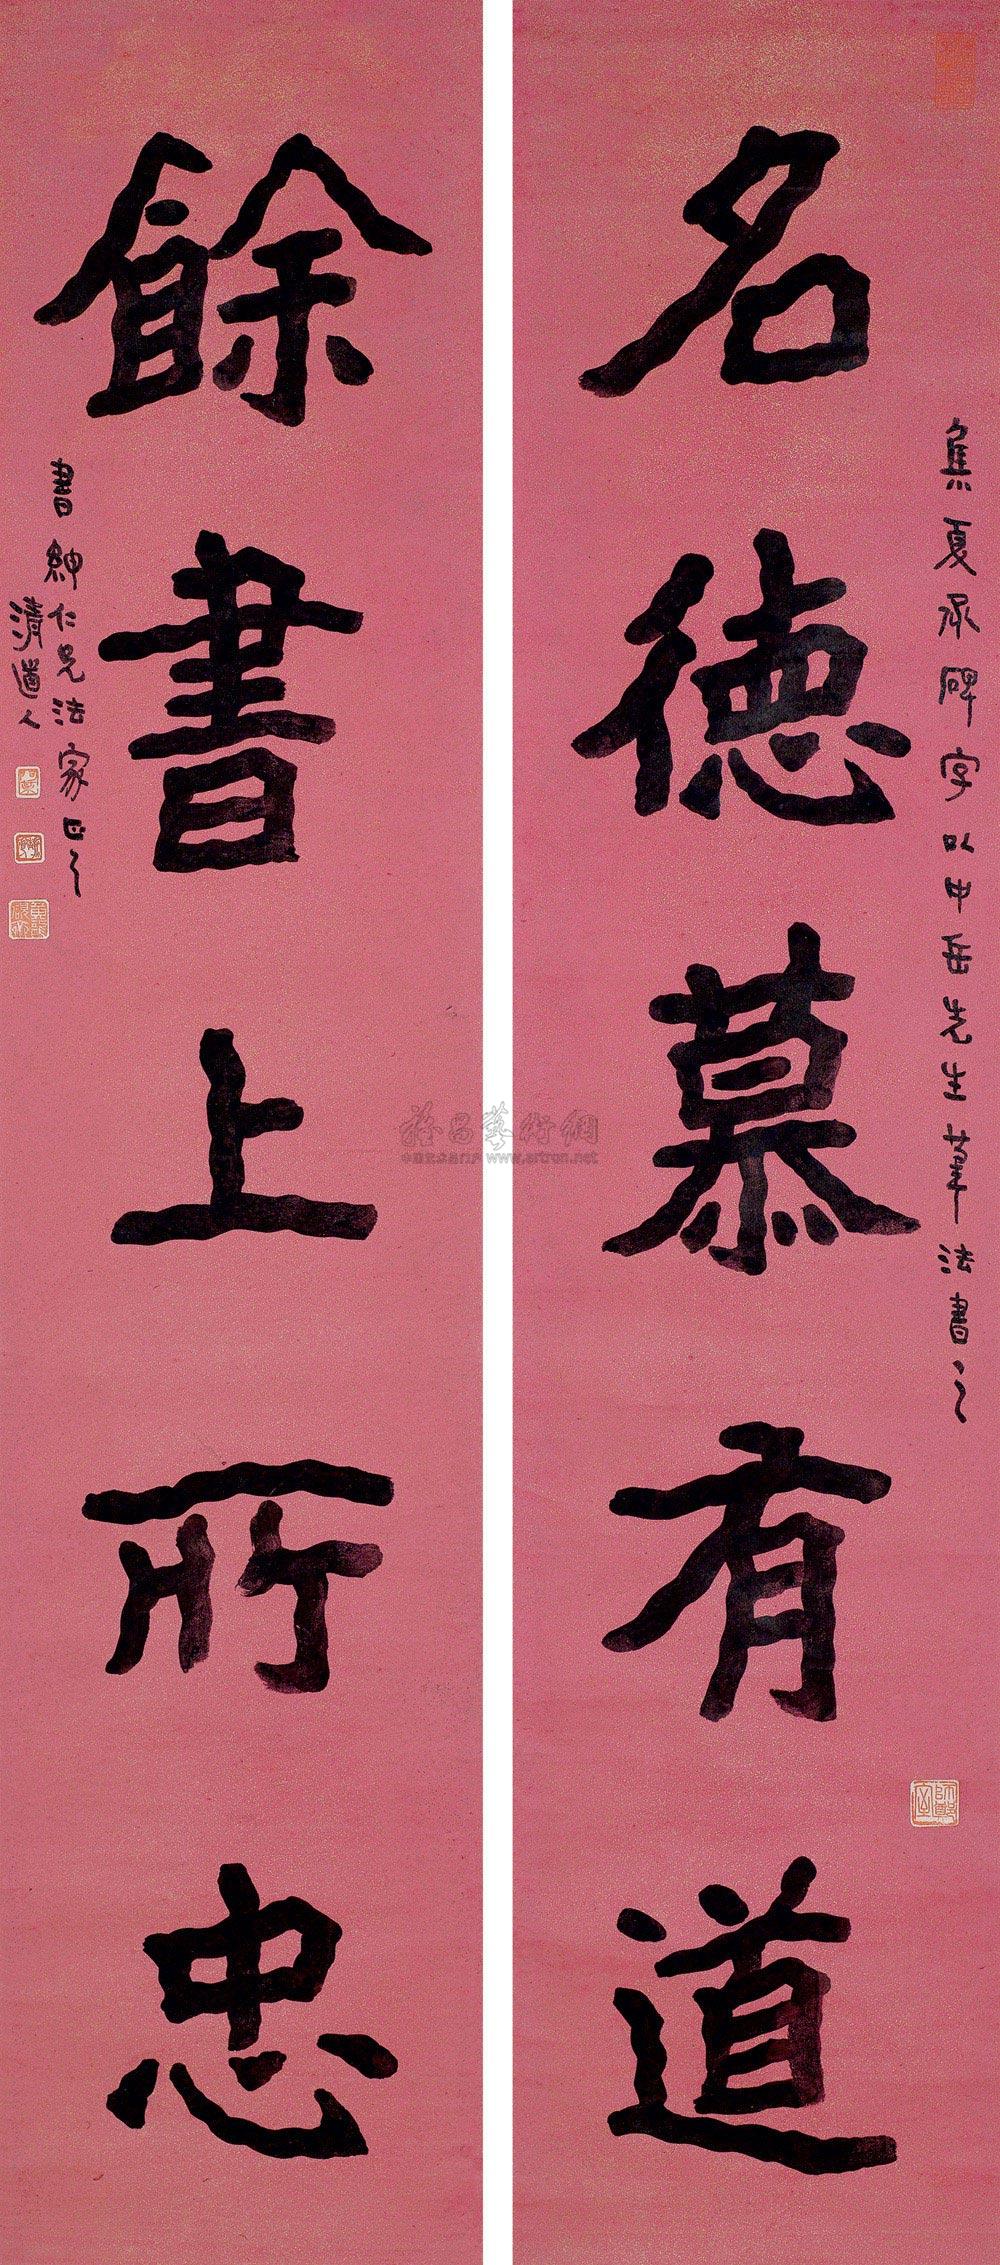 名德慕有道
集夏承碑字以中岳先生筆法書之
餘書上所忠
書紳仁兄法家正之
清道人
www.artron.net